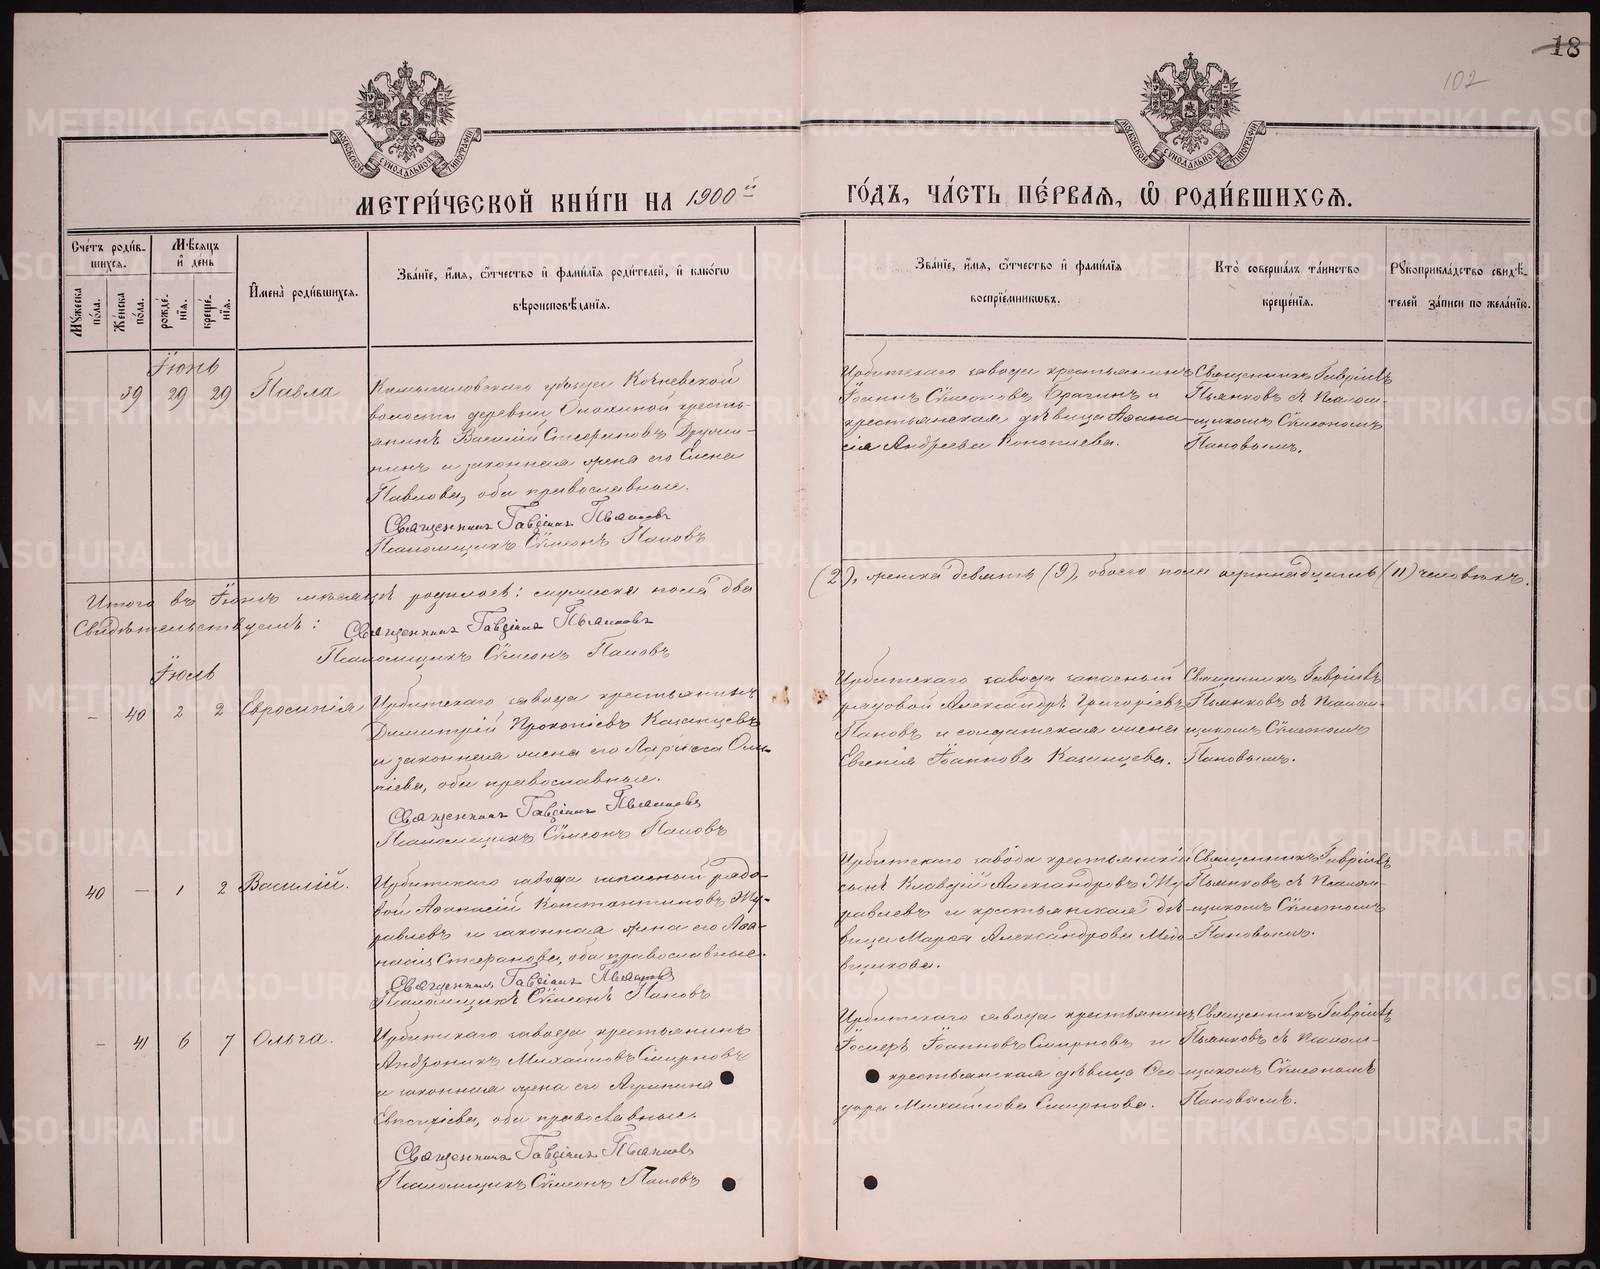 18
102
МОСКОВСКОЙ СУНОДАЛЬНОЙ ТИПОГРАФИИ
МОСКОВСКОЙ СУНОДАЛЬНОЙ ТИПОГРАФИИ
МЕТРИ́ЧЕСКОЙ КНИ́ГИ НА 1900й
ГО́ДЪ, ЧА́СТЬ ПЕ́РВАѦ, Ѡ҆ РОДИ́ВШИХСѦ.
Сче́тъ роди́в-
шихсѧ.
Мꙋ́жеска по́ла.
Же́нска по́ла.
Мѣ́сѧцъ и҆ де́нь
рожде́-нїѧ.
креще́-нїѧ.
И҆мена̀ роди́вшихсѧ.
Зва́нїе, и҆́мѧ, ѻ҆́тчество и҆ фами́лїѧ роди́телей, и҆ како́гѡ
вѣроисповѣ́данїѧ.
Зва́нїе, и҆́мѧ, ѻ҆́тчество и҆ фами́лїѧ
воспрїе́мникѡвъ.
Кто̀ соверша́лъ та́инство
креще́нїѧ.
Рꙋкоприкла́дство свидѣ́-
телей за́писи по жела́нїю.
Іюнь
39 29 29 Павла
Камышловскаго уѣзда Кочневской
волости деревни Опохиной кресть-
янинъ Василій Стефановъ Дружи-
нинъ и законная жена его Елена
Павлова, оба православные.
Священникъ Гавріилъ Пьянковъ
Псаломщикъ Сѷмеонъ Поповъ
Ирбитскаго завода крестьянинъ
Іоаннъ Сѷмеоновъ Брагинъ и
крестьянская дѣвица Аѳана-
сія Андреева Коноплева.
Священникъ Гавріилъ
Пьянковъ съ псалом-
щикомъ Сѷмеономъ
Поповымъ.
Итого въ Іюнѣ мѣсяцѣ родилось: мужеска пола два
(2), женска девять (9), обоего пола одиннадцать (11) человѣкъ.
Свидѣтельствуемъ: Священникъ Гавріилъ Пьянковъ
Псаломщикъ Сѷмеонъ Поповъ
Іюль
- 40 2 2 Евросинія
Ирбитскаго завода крестьянинъ
Димитрій Прокопіевъ Казанцевъ
и законная жена его Ларисса Оли-
піева, оба православные.
Священникъ Гавріилъ Пьянковъ
Псаломщикъ Сѷмеонъ Поповъ
Ирбитскаго завода запасный
рядовой Александръ Григоріевъ
Поповъ и солдатская жена
Евгенія Іоаннова Казанцева.
Священникъ Гавріилъ
Пьянковъ съ псалом-
щикомъ Сѷмеономъ
Поповымъ.
40 — 1 2 Василій.
Ирбитскаго завода запасный рядо-
вой Аѳанасій Константиновъ Жу-
равлевъ и законная жена его
Стефанова, оба православные.
Священникъ Гавріилъ Пьянковъ
Псаломщикъ Сѷмеонъ Поповъ
Ирбитскаго завода крестьянскій
сынъ Клавдій Александровъ Жу-
равлевъ и крестьянская дѣ-
вица Марѳа Александрова Медо-
вщикова.
Священникъ Гавріилъ
Пьянковъ съ псалом-
щикомъ Сѷмеономъ
Поповымъ.
- 41 6 7 Ольга.
Ирбитскаго завода крестьянинъ
Андроникъ Михайловъ Смирновъ
и законная жена его Агрипина
Евтихіева, оба православные.
Священникъ Гавріилъ Пьянковъ
Псаломщикъ Сѷмеонъ Поповъ
Ирбитскаго завода крестьянинъ
Іоаннъ Смирновъ и
крестьянская дѣвица Ѳео-
дора Михайлова Смирнова.
Священникъ Гавріилъ
Пьянковъ съ псалом-
щикомъ Сѷмеономъ
Поповымъ.
METRIKI.GASO-URAL.RU